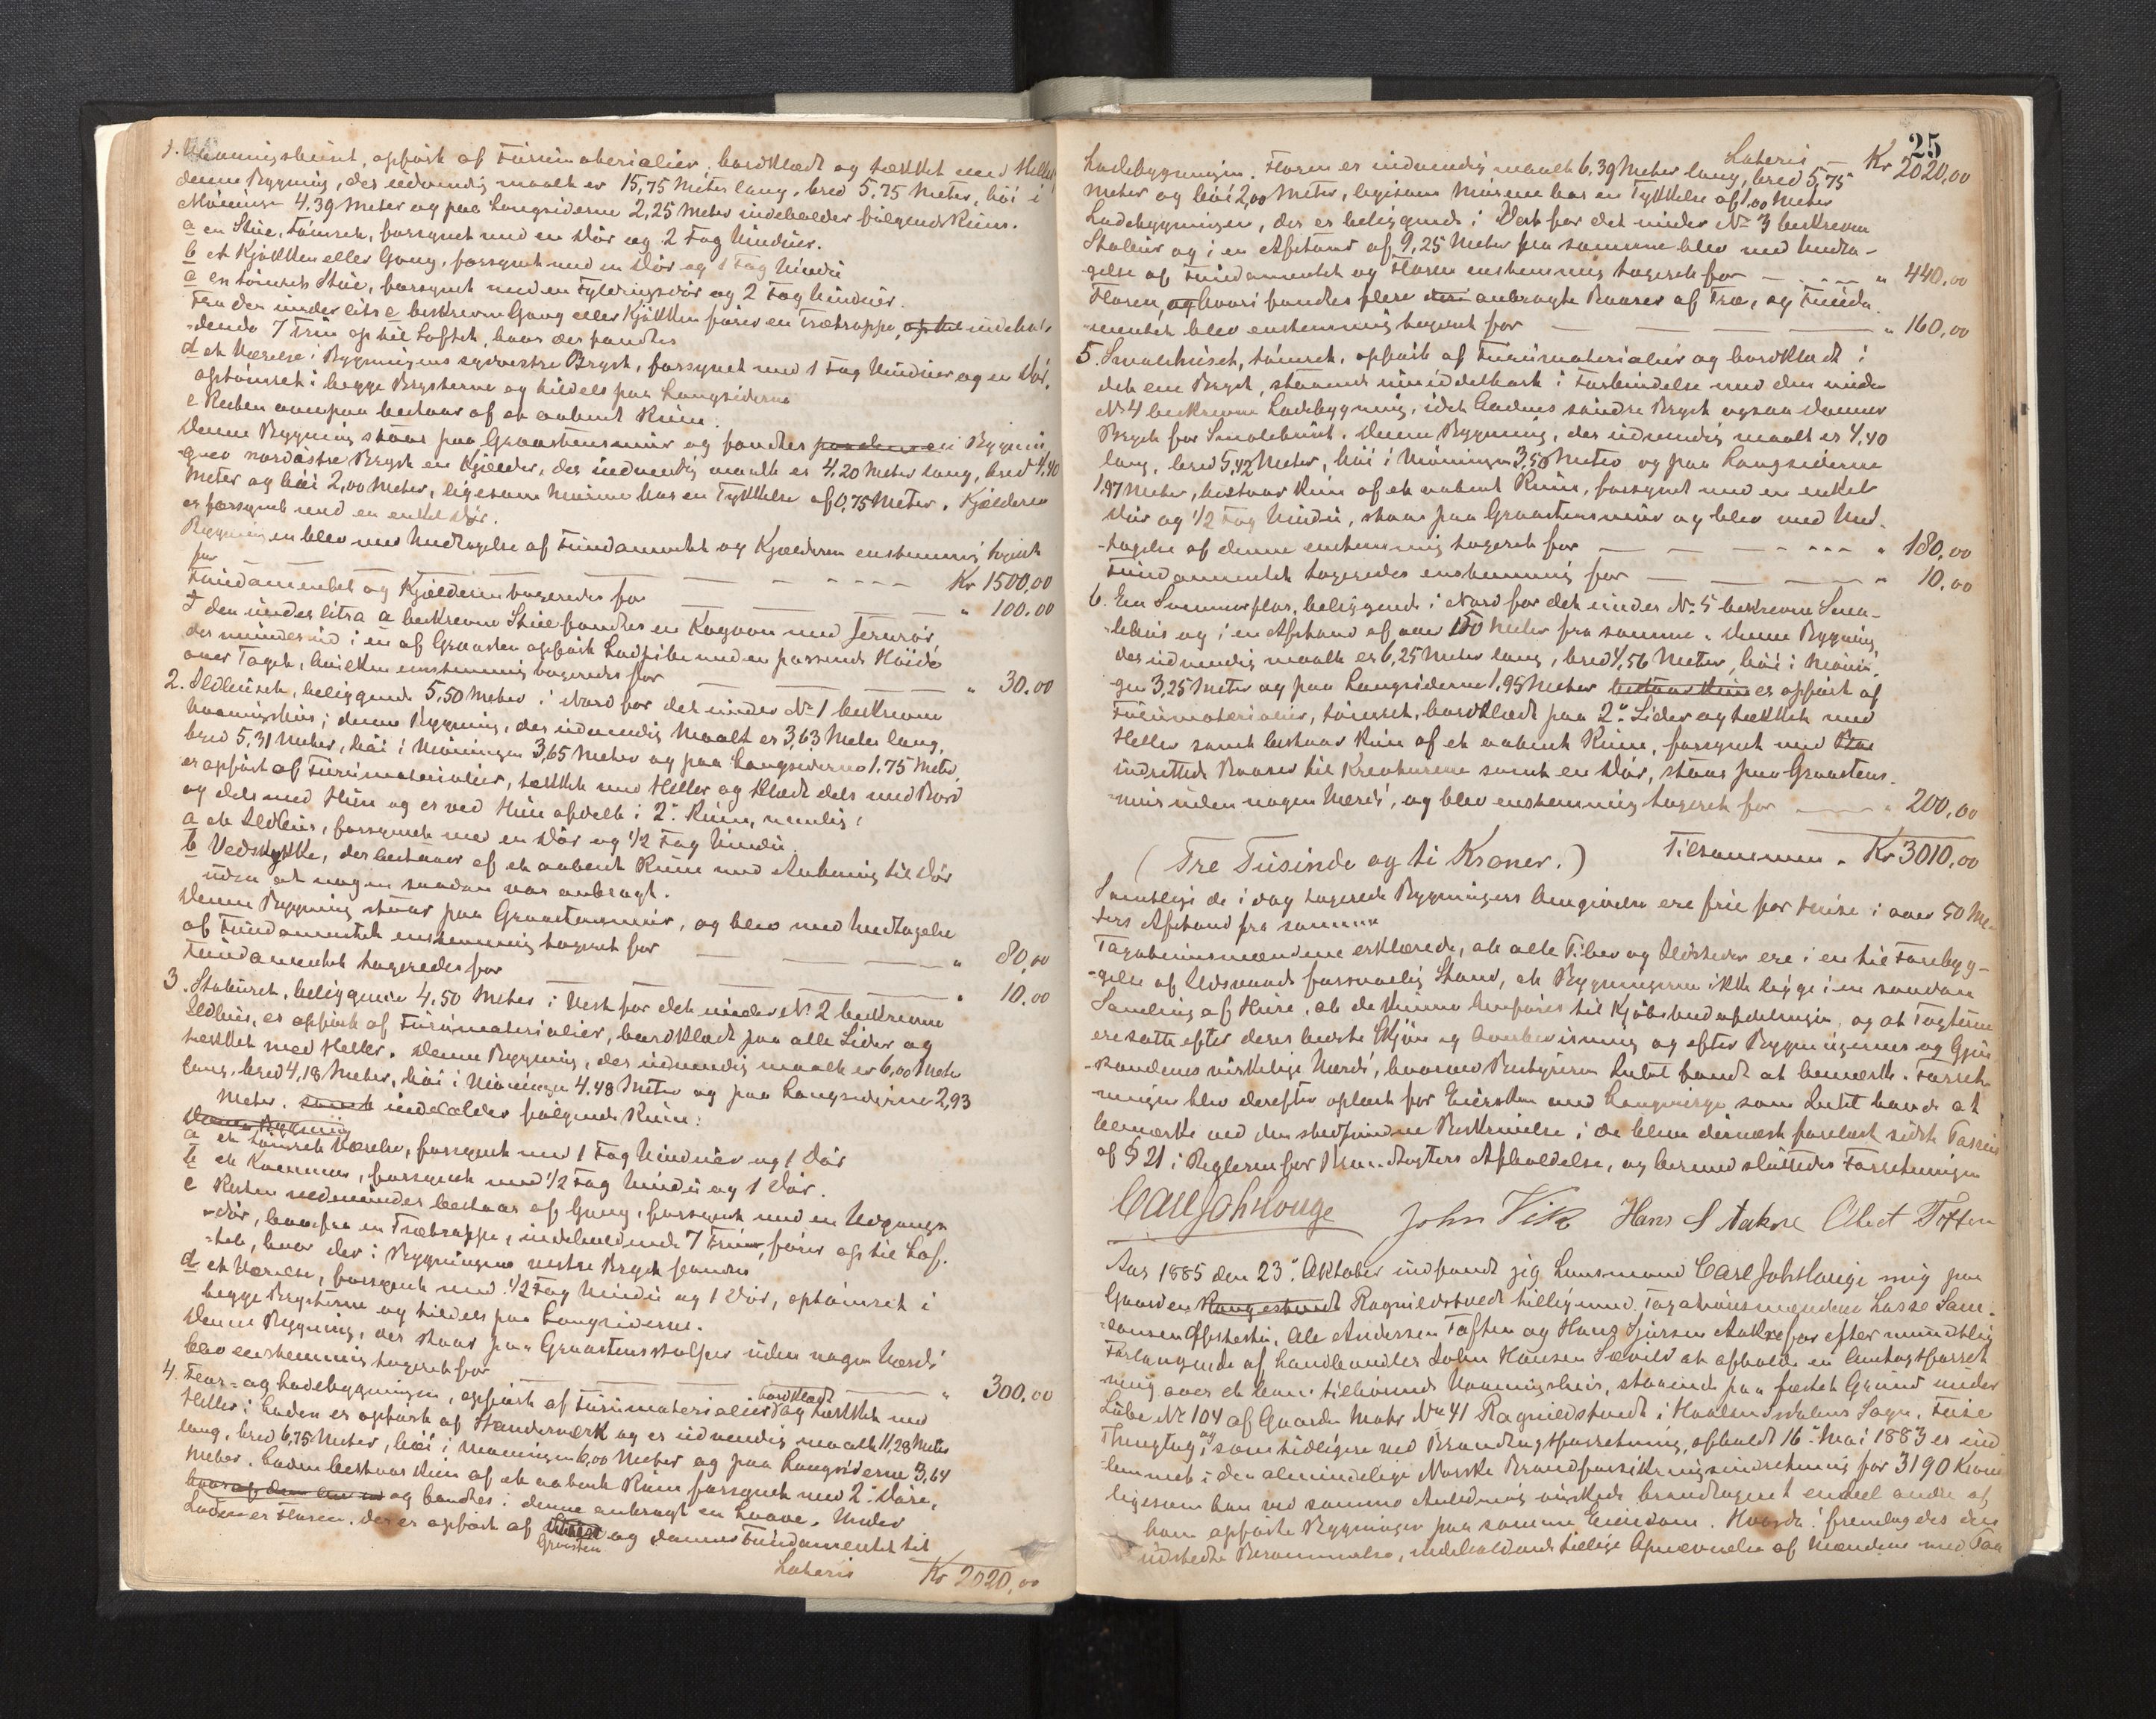 1. Vaaningshuset, opført af Furumaterialier, bordklædt og tækket med Heller,
denne Bygning, der udvendig maalt er 15,75 Meter lang, bred 5,75 Meter, høi i
Møningen 4,39 Meter og paa Langsiderne 2,25 Meter indeholder følgende Rum.
a en Stue, tømret, forsynet med en Dør og 2 Fag Vinduer.
b et Kjøkken eller Gang, forsynet med en Dør og 1 Fag Vindu
c en tømret Stue, forsynet med en Fyldingsdør og 2 Fag Vinduer.
Fra den under litra c beskrevne Gang eller Kjøkken fører en Trætrappe, op til indehol-
dende 7 Trin op til Loftet, hvor der fandtes
d et Værelse i Bygningens sydvestre Bryst, forsynet med 1 Fag Vinduer og en Dør,
optømret i begge Brysterne og tildels paa Langsiderne
e Resten ovenpaa bestaar af et aabent Rum.
Denne Bygning staar paa Graastensmur og fandtes paa denne i Bygnin-
gens nordøstre Bryst en Kjælder, der indvendig maalt er 4,20 Meter lang, bred 4,40
Meter og høi 2,00 Meter, ligesom Murene har en Tykkelse af 0,75 Meter. Kjælderen
er forsynet med en enkel Dør.
Bygningen blev med Undtagelse af Fundamentet og Kjælderen enstemmig taxeret
for Kr 1500,00
Fundamentet og Kjælderen taxeredes for " 100.00
I den under litra a beskrevne Stue fandtes en Kogeovn med Jernrør,
der munder ind i en af Graasten opført Ladpibe med en passende Høide
over Taget, hvilken enstemmig taxeredes for " 30.00
2. Ildhuset, beliggende 5,50 Meter i Nord for det under No 1 beskrevne
Vaaningshus; denne Bygning, der udvendig maalt er 3,63 Meter lang,
bred 5,31 Meter, høi i Møningen 3,65 Meter og paa Langsiderne 1,75 Meter,
er opført af Furumaterialier, tækket med Heller og klædt dels med Bord
og dels med Hun og er ved Hun afdelt i 2de Rum, nemlig:
a et Ildhus, forsynet med en Dør og 1/2 Fag Vindu.
b Vedskykke, der bestaar af et aabent Rum med Aabning til Dør
uden at nogen saadan var anbragt.
Denne Bygning staar paa Graastensmur, og blev med Undtagelse
af Fundamentet enstemmig taxeret for " 80,00
Fundamentet taxeredes for " 10.00
3. Stabburet, beliggende 4,50 Meter i Vest for det under No 2 beskrevne
Ildhus, er opført af Furumaterialier, bordklædt paa alle Sider og
tækket med Heller. Denne Bygning, der udvendig maalt er 6,00 Meter
lang, bred 4,18 Meter, høi i Møningen 4,48 Meter og paa Langsiderne 2,93
Meter. samt indeholder følgende Rum:
Denne Bygning
a et tømret Værelse, forsynet med 1 Fag Vinduer og 1 Dør
b et Kammer, forsynet med 1/2 Fag Vindu og 1 Dør.
c Resten nedenunder bestaar af Gang, forsynet med en Udgangs-
dør, hvorfra en Trætrappe, indeholdende 7 Trin, fører op til Lof-
tet, hvor der i Bygningens vestre Bryst fandtes
d et Værelse, forsynet med 1/2 Fag Vindu og 1 Dør, optømret i
begge Brysterne og tildels paa Langsiderne.
Denne Bygning, der staar paa Graastensstolper uden nogen Værdi
blev enstemmig taxeret for " 300,00
4. Flor- og Ladebygningen, opført af Furumaterialier, bordklædt og tækket med
Heller; Laden er opført af Stænderværk og er udvendig maalt 11,28 Meter
lang, bred 6,75 Meter, høi i Møningen 6,00 Meter og paa Langsiderne 3,64
Meter. Laden bestaar kun af et aabent Rum forsynet med 2de Døre,
og fandtes i denne anbragt en Laave. Under
Laden er Floren, der er opført af Graasten og danner Fundamentet til
Lateris Kr 2020,00
25
Lateris Kr 2020,00
Ladebygningen. Floren er indvendig maalt 6,39 Meter lang, bred 5,75
Meter og høi 2,00 Meter, ligesom Murene har en Tykkelse af 1,00 Meter
Ladebygningen, der er beliggende i Vest for det under No 3 beskrevne
Stabur og i en Afstand af 9,25 Meter fra samme blev med Undta-
gelse af Fundamentet og Floren enstemmig taxeret for " 440,00
Floren, og hvori fandtes flere anbragte Baaser af Træ, og Funda-
mentet blev enstemmig taxeret for " 160,00
5. Smalehuset, tømret, opført af Furumaterialier og bordklædt i
det ene Bryst, staaende umiddelbart i Forbindelse med den under
No 4 beskrevne Ladebygning, idet Ladens søndre Bryst ogsaa danner
Bryst for Smalehuset. Denne Bygning, der udvendig maalt er 4,40
lang, bred 5,42 Meter, høi i Møningen 3,50 Meter og paa Langsiderne
1,97 Meter, bestaar kun af et aabent Rum, forsynet med en enkel
Dør og 1/2 Fag Vindu, staar paa Graastensmur og blev med Und-
tagelse af denne enstemmig taxeret for " 180,00
Fundamentet taxeredes enstemmig for " 10,00
6. En Sommerflor, beliggende i Nord for det under No 5 beskrevne Sma-
lehus og i en Afstand af over 150 Meter fra samme. Denne Bygning,
der udvendig maalt er 6,25 Meter lang, bred 4,56 Meter, høi i Mønin-
gen 3,25 Meter og paa Langsiderne 1,95 Meter bestaar kun er opført af
Furumaterialier, tømret, bordklædt paa 2de Sider og tækket med
Heller samt bestaar kun af et aabent Rum, forsynet med
indrettede Baaser til Kreaturene samt en Dør, staar paa Graastens-
mur uden nogen Værdi, og blev enstemmig taxeret for " 200,00
(Tre Tusinde og ti Kroner.) Tilsammen " Kr 3010,00
Samtlige de i dag taxerede Bygningers Omgivelser ere frie for Huse i over 50 Me-
ters Afstand fra samme
Taxationsmændene erklærede, at alle Piber og Ildsteder ere i en til Forebyg-
gelse af Ildsvaade forsvarlig Stand, at Bygningerne ikke ligge i en saadan
Samling af Huse, at de kunne henføres til Kjøbstadafdelingen, og at Taxterne
ere satte efter deres bedste Skjøn og Overbevisning og efter Bygningernes og Gjen-
standenes virkelige Værdi, hvorved Bestyreren Intet fandt at bemærke. Forret-
ningen blev derefter oplæst for Eiersken med Laugværge som Intet havde at
bemærke ved den stedfundne Beskrivelse; de blev dernæst forelæst sidste Passus
af § 21 i Reglerne for Brandtaxters Afholdelse, og hermed sluttedes Forretningen
Carl Joh Houge John Vik Hans S Aakre Olai Toften
Aar 1885 den 23de Oktober indfandt jeg Lensmand Carl Joh Houge mig paa
Gaarden Kongestvedt Ragnildstvedt tilligemed Taxationsmændene Lasse Sam-
sonsen Ole Andersen Toften og Hans Sjursen Aakre for efter mundtlig
Forlangende af Landhandler John Hansen Sævild at afholde en Omtaxtforret-
ning over et ham tilhørende Vaaningshus, staaende paa fæstet Grund under
Løbe No 104 af Gaarden Matr No 41 Ragnildstvedt i Haalandsdalens Sogn, Fuse
Thinglag, og som tidligere ved Brandtaxtforretning, afholdt 16de Mai 1883 er ind-
lemmet i den almindelige Norske Brandforsikringsindretning for 3190 Kroner
ligesom han ved samme Anledning ønskede brandtaxeret endeel andre af
ham opførte Bygninger paa samme Eiendom. Hvorda! fremlagdes den
udstedte Berammelse, indeholdende tillige Opnævnelse af Mændene med Paa-